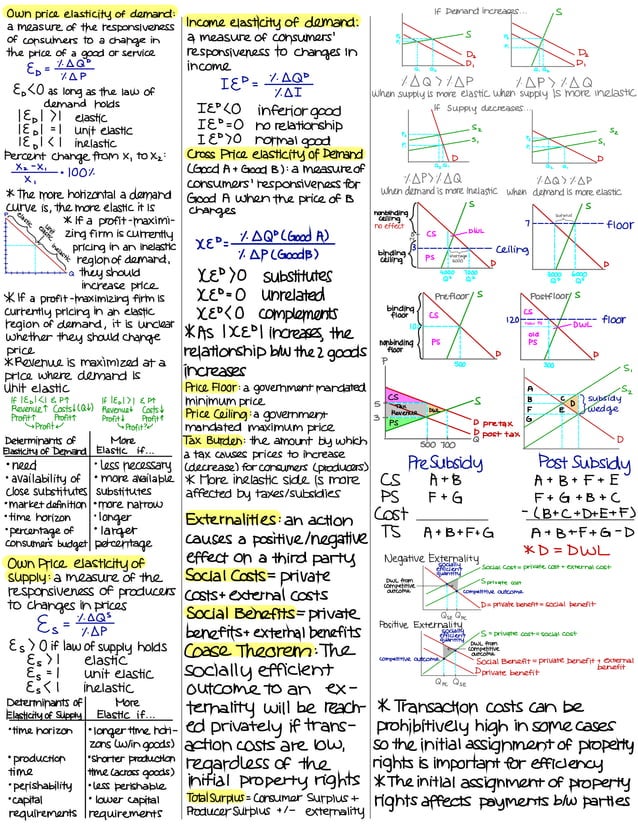 Own price elasticity of demand:
a measure of the responsiveness
of consumers to a change in
the price of a good or service
ℰD = %ΔQᴰ / %ΔP
ℰD<0 as long as the law of
demand holds
|ℰD| >1 elastic
|ℰD| = 1 unit elastic
|ℰD| < 1 inelastic
Percent change from x₁ to x₂:
x₂-x₁ / x₁ • 100%
* The more horizontal a demand
curve is, the more elastic it is
P
elastic
unit elastic
inelastic
Q
* If a profit-maximi-
zing firm is currently
pricing in an inelastic
region of demand,
they should
increase price
* If a profit-maximizing firm is
currently pricing in an elastic
region of demand, it is unclear
whether they should change
price
* Revenue is maximized at a
price where demand is
unit elastic
If |ED|<1 & P↑ If |ED|>1 & P↑
Revenue↑ Costs↓(Q↓) Revenue↓ Costs↓
Profit↑ Profit↑ Profit↓ Profit↑
Profit↑ Profit?
Determinants of Elasticity of Demand
More Elastic if...
•need •less necessary
•availability of close substitutes •more available substitutes
•market definition •more narrow
•time horizon •longer
•percentage of consumers budget •larger percentage
Own Price elasticity of
supply: a measure of the
responsiveness of producers
to changes in prices
ℰS = %ΔQˢ / %ΔP
ℰS > 0 if law of supply holds
ℰS > 1 elastic
ℰS = 1 unit elastic
ℰS < 1 inelastic
Determinants of Elasticity of Supply
More Elastic if...
•time horizon •longer time hori-zons (w/in goods)
•production time •shorter production time (across goods)
•perishability •less perishable
•capital requirements •lower capital requirements
Income elasticity of demand:
a measure of consumers'
responsiveness to changes in
income
IℰD = %ΔQᴰ / %ΔI
IℰD<0 inferior good
IℰD=0 no relationship
IℰD>0 normal good
Cross Price elasticity of Demand
(Good A + Good B): a measure of
consumers' responsiveness for
Good A when the price of B
changes
XℰD = %ΔQᴰ(Good A) / %ΔP(Good B)
XℰD>0 substitutes
XℰD=0 unrelated
XℰD<0 complements
*As |XℰD| increases, the
relationship b/w the 2 goods
increases
Price Floor: a government mandated
minimum price
Price Ceiling: a government
mandated maximum price
Tax Burden: the amount by which
a tax causes prices to increase
(decrease) for consumers (producers)
* More inelastic side is more
affected by taxes/subsidies
Externalities: an action
causes a positive/negative
effect on a third party
Social Costs = private
costs + external costs
Social Benefits = private
benefits + external benefits
Coase Theorem: The
socially efficient
outcome to an ex-
ternality will be reach-
ed privately if trans-
action costs are low,
regardless of the
initial property rights
Total Surplus = Consumer Surplus +
Producer Surplus +/- externality
If Demand increases...
S
D₂
D₁
S
D₂
D₁
%ΔQ > %ΔP %ΔP > %ΔQ
When supply is more elastic when supply is more inelastic
If Supply decreases...
S₂
S₁
D
S₂
S₁
D
%ΔP > %ΔQ %ΔQ > %ΔP
When demand is more inelastic when demand is more elastic
nonbinding ceiling
no effect
binding ceiling
3
CS
PS
DWL
shortage
S
D
4000 7000
ceiling
7
surplus
S
D
3000 6000
floor
Prefloor
binding floor
nonbinding floor
10
CS
PS
S
D
500
Postfloor
120
old PS
DWL
S
D
300
floor
P
5
3
CS
Tax Revenue
DWL
PS
500 700
Q
D pretax
D post tax
A
B
F
G
C
E
D
subsidy wedge
S
D
Pre Subsidy Post Subsidy
CS A+B A+B+F+E
PS F+G F+G+B+C
Cost -(B+C+D+E+F)
TS A+B+F+G A+B+F+G-D
*D = DWL
Negative Externality
socially efficient quantity
Social cost = private cost + external cost
S private cost
DWL from competitive outcome
competitive outcome
D = private benefit = social benefit
QSE QPC
Positive Externality
socially efficient quantity
S = private cost = social cost
DWL from competitive outcome
competitive outcome
Social Benefit = private benefit + external benefit
D private benefit
QPC QSE
* Transaction costs can be
prohibitively high in some cases
so the initial assignment of property
rights is important for efficiency
* The initial assignment of property
rights affects payments b/w parties